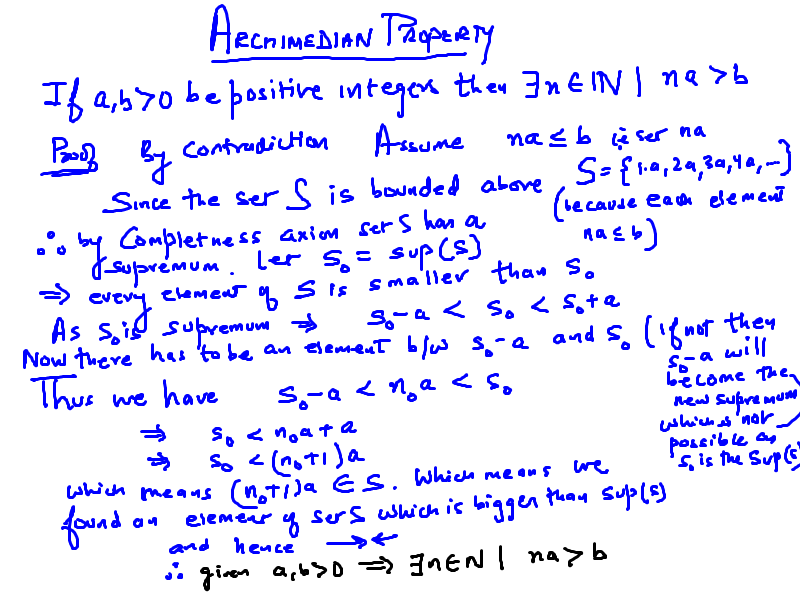 ARCHIMEDIAN PROPERTY
If a,b>0 be positive integers then ∃n∈ℕ | na>b
Proof By Contradiction Assume na≤b i.e set na
S={1.a,2a,3a,4a,...}
Since the set S is bounded above (because each element na≤b)
∴ by Completness axion set S has a
supremum. Let S₀ = sup(S)
⇒ every element of S is smaller than S₀
As S₀ is supremum ⇒ S₀-a < S₀ < S₀+a
Now there has to be an element b/w S₀-a and S₀ (if not then
S₀-a will
become the
new supremum
which is not
possible as
S₀ is the Sup(S)
Thus we have S₀-a < n₀a < S₀
⇒ S₀ < n₀a+a
⇒ S₀ < (n₀+1)a
which means (n₀+1)a ∈ S. Which means we
found an element of set S which is bigger than Sup(S)
and hence →←
∴ given a,b>0 ⇒ ∃n∈N | na>b